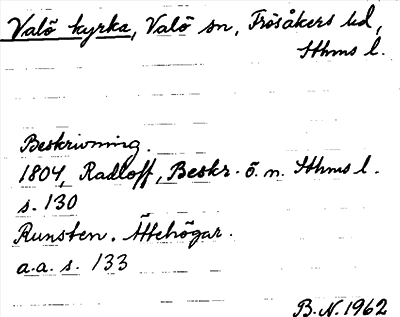 Valö kyrka, Valö sn, Frösåkers hd,
Sthms l.
Beskrivning.
1804, Radloff, Beskr. ö. n. Sthms l.
s. 130
Runsten. Ättehögar.
a.a. s. 133
B.N. 1962